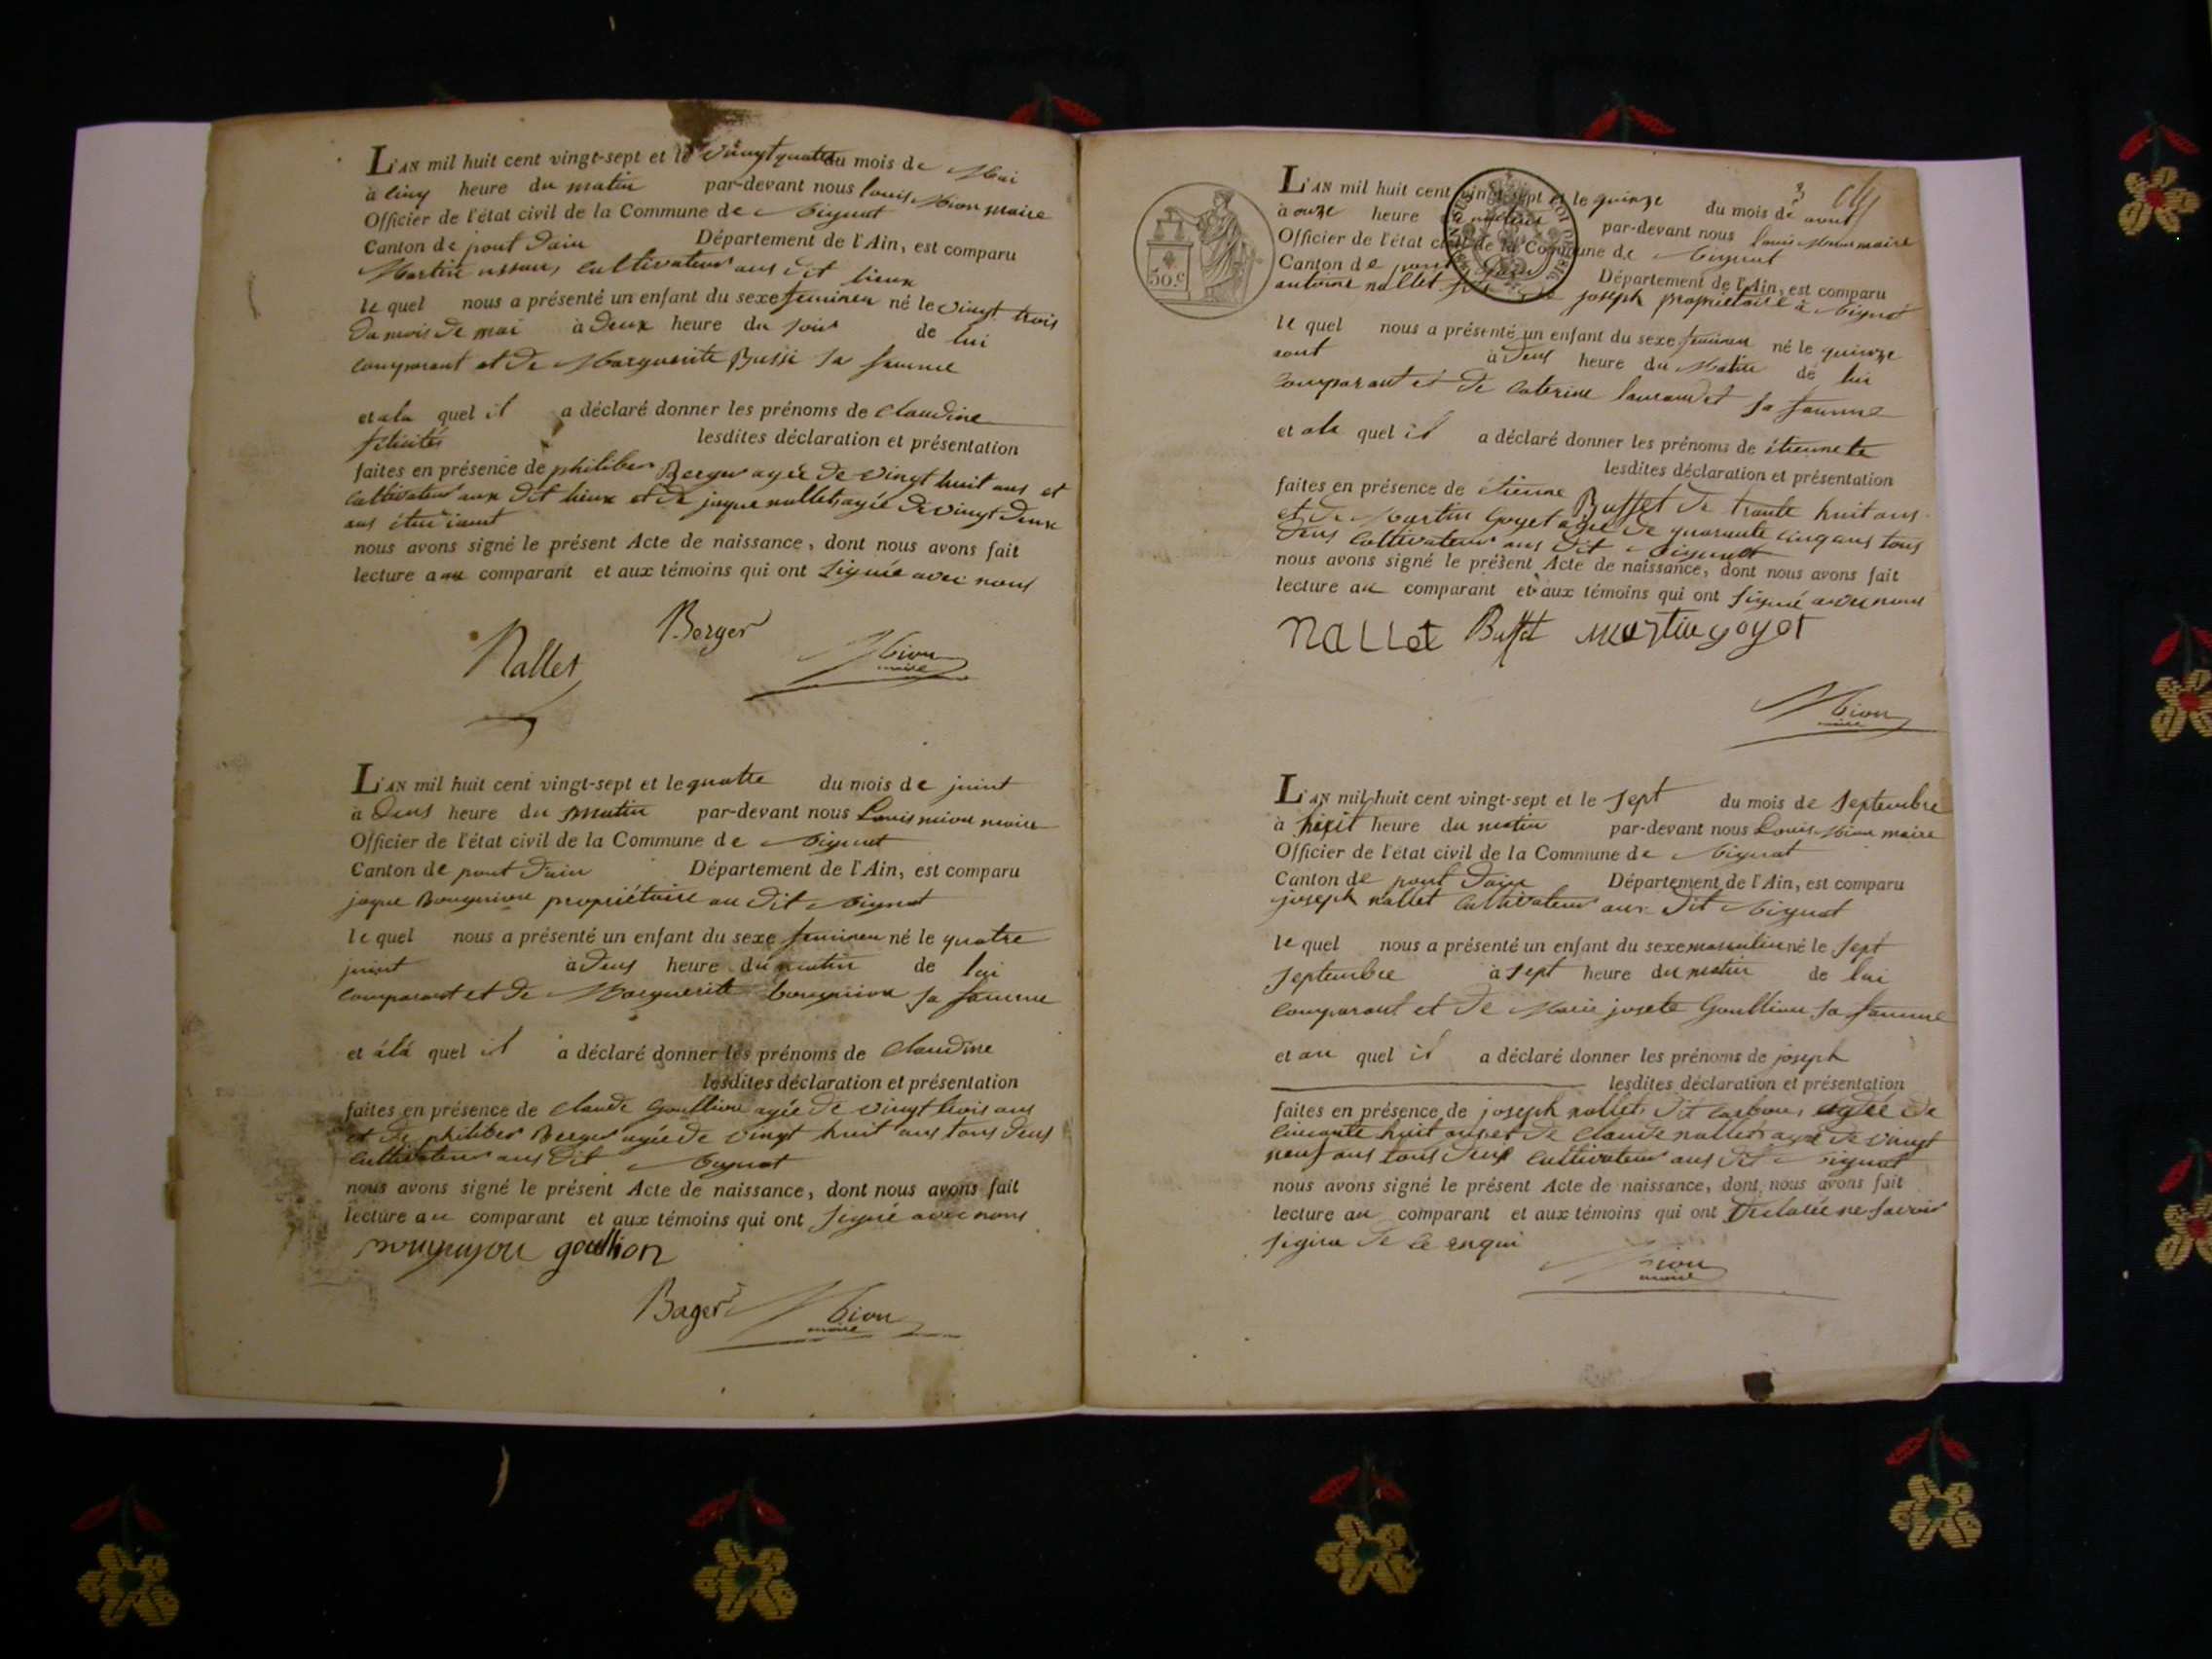 L'AN mil huit cent vingt-sept et le vingt quatre du mois de Mai
à cinq heure du matin par-devant nous louis Mion maire
Officier de l'état civil de la Commune de
Canton de pont dain Département de l'Ain, est comparu
Martin cultivateur aus dit lieux
le quel nous a présenté un enfant du sexe feminen né le vingt trois
du mois de mai à deux heure du soir de lui
comparant et de Marguerite Bussi sa famme
et ala quel il a déclaré donner les prénoms de Claudine
félicité lesdites déclaration et présentation
faites en présence de philiber Berger agée de vingt huit ans et
cultivateur aux dit lieux et de jaque nallet agée de vingt deux
ans étudiant
nous avons signé le présent Acte de naissance, dont nous avons fait
lecture au comparant et aux témoins qui ont signée avec nous
Nallet Berger Mion
maire
L'AN mil huit cent vingt-sept et le quatre du mois de juint
à deus heure du matin par-devant nous Louis mion maire
Officier de l'état civil de la Commune de
Canton de pont dain Département de l'Ain, est comparu
jaque propriétaire au dit
le quel nous a présenté un enfant du sexe feminen né le quatre
juint à deus heure du matin de lui
comparant et de Marguerite sa famme
et àlà quel il a déclaré donner les prénoms de Claudine
lesdites déclaration et présentation
faites en présence de Claude Goullion agée de vingt trois ans
et de philiber Berger agée de vingt huit ans tous deus
cultivateur aus dit
nous avons signé le présent Acte de naissance, dont nous avons fait
lecture au comparant et aux témoins qui ont signé avec nous
goullion
Berger Mion
maire
L'AN mil huit cent vingt-sept et le quinze du mois de aout
à onze heure du matin par-devant nous louis Mion maire
Officier de l'état civil de la Commune de
Canton de pont Dain Département de l'Ain, est comparu
antoine nallet fils de joseph propriétaire à
le quel nous a présenté un enfant du sexe feminen né le quinze
aout à deus heure du Matin de lui
comparant et de caterine sa famme
et ala quel il a déclaré donner les prénoms de étiennete
lesdites déclaration et présentation
faites en présence de étienne Buffet de trante huit ans
et de Martin Goyet agée de quarante cinq ans tous
deus cultivateur aus dit
nous avons signé le présent Acte de naissance, dont nous avons fait
lecture au comparant et aux témoins qui ont signé avec nous
nallet Buffet Martin goyet
Mion
maire
50.c
L'AN mil huit cent vingt-sept et le sept du mois de septembre
à heure du matin par-devant nous Louis Mion maire
Officier de l'état civil de la Commune de
Canton de pont dain Département de l'Ain, est comparu
joseph nallet cultivateur aux dit
le quel nous a présenté un enfant du sexe masculin né le sept
septembre à sept heure du matin de lui
comparant et de Marie josete Goullion sa famme
et au quel il a déclaré donner les prénoms de joseph
lesdites déclaration et présentation
faites en présence de joseph nallet dit agée de
cincante huit ans et de Claude nallet agée de vingt
neuf ans tous deus cultivateur aus dit
nous avons signé le présent Acte de naissance, dont nous avons fait
lecture au comparant et aux témoins qui ont declarée ne savoir
signer de ce enqui
Mion
maire